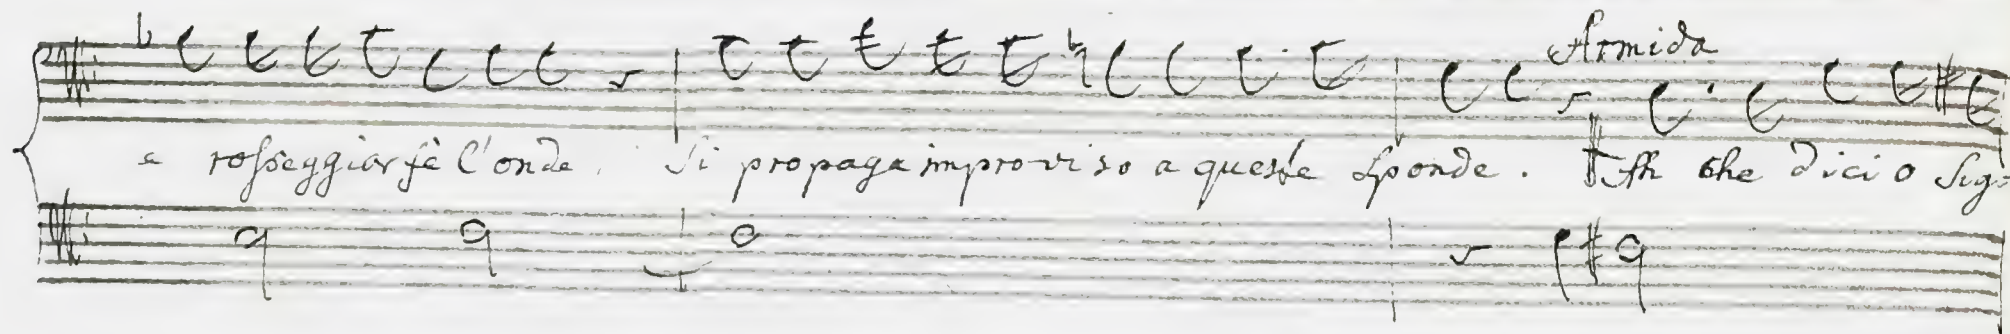 Armida
e rosseggiar fè l'onde. Si propaga improviso a queste sponde. Ah che dici o